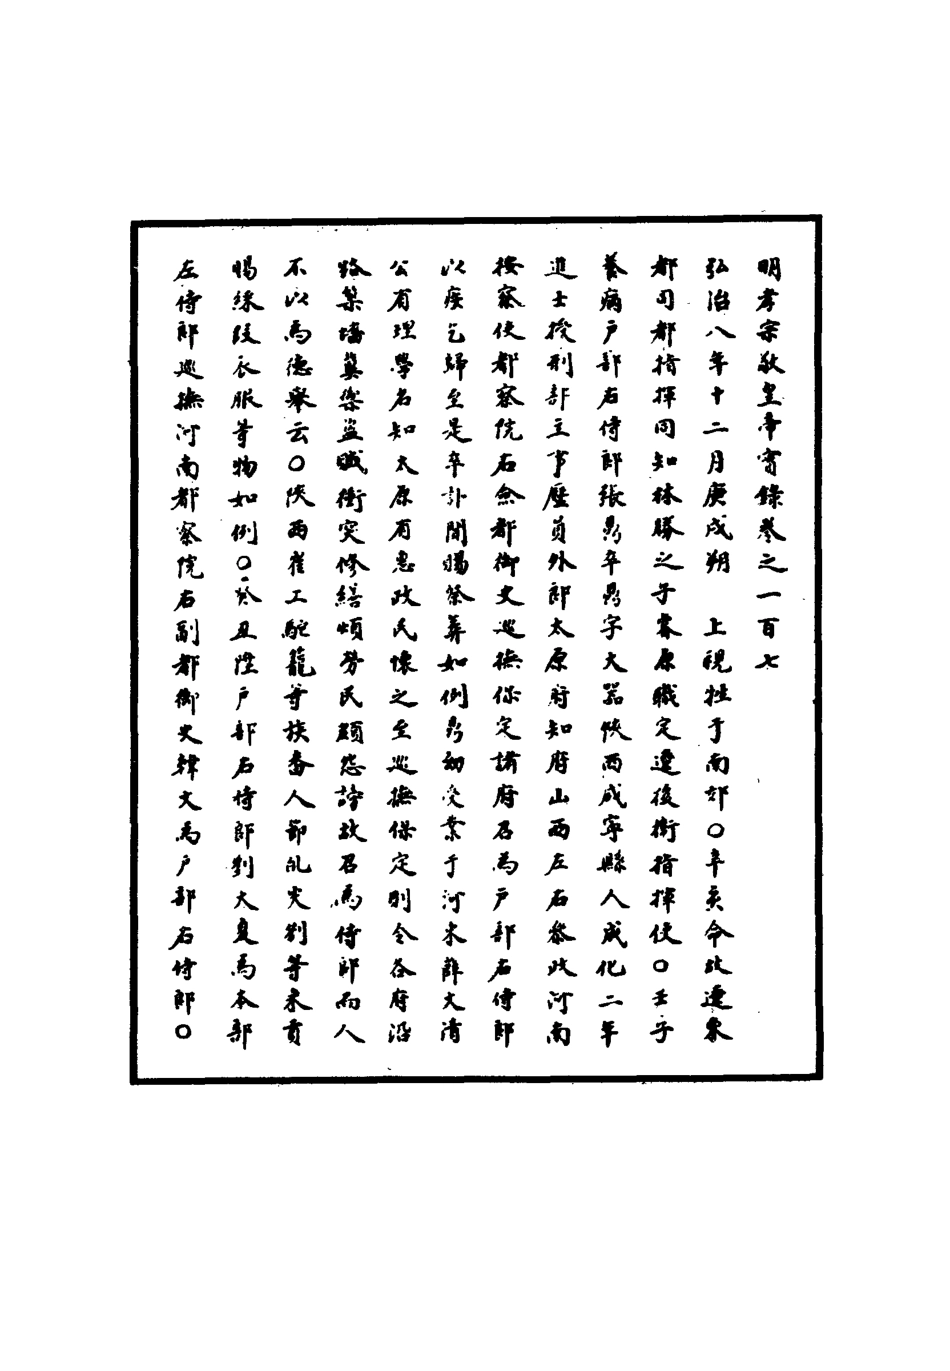 明孝宗敬皇帝實錄卷之一百七
弘治八年十二月庚戌朔　上視牲于南郊○辛亥命故遼東
都司都指揮同知林勝之子睿原職定遼後衛指揮使○壬子
養病戶部右侍郎張鼎卒鼎字大器陝西咸寧縣人成化二年
進士授刑部主事歷員外郎太原府知府山西左右參政河南
按察使都察院右僉都御史巡撫保定諸府召為戶部右侍郎
以疾乞歸至是卒訃聞賜祭葬如例鼎幼受業于河東薛文清
公有理學名知太原有惠政民懷之至巡撫保定則令各府沿
路築墻冀禦盜賊衝突修繕煩勞民頗怨謗故召為侍郎而人
不以為德舉云○陝西崔工駝籠等族番人節乩失剳等來貢
賜綵段衣服等物如例○癸丑陞戶部右侍郎劉大夏為本部
左侍郎巡撫河南都察院右副都御史韓文為戶部右侍郎○